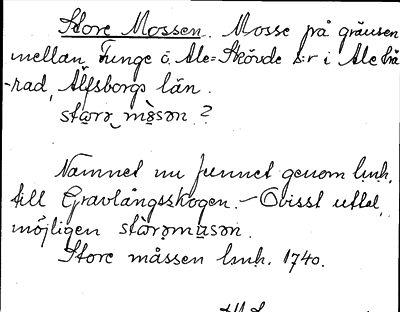 Store Mossen. Mosse på gränsen
mellan Tunge o. Ale=Skövde s:r i Ale hä
-rad, Älfsborgs län.
starə mɷ̀sən ?
Namnet nu funnet genom lmh.
till Gravlångsskogen. - Ovisst uttal,
möjligen
Store måssen lmh. 1740.